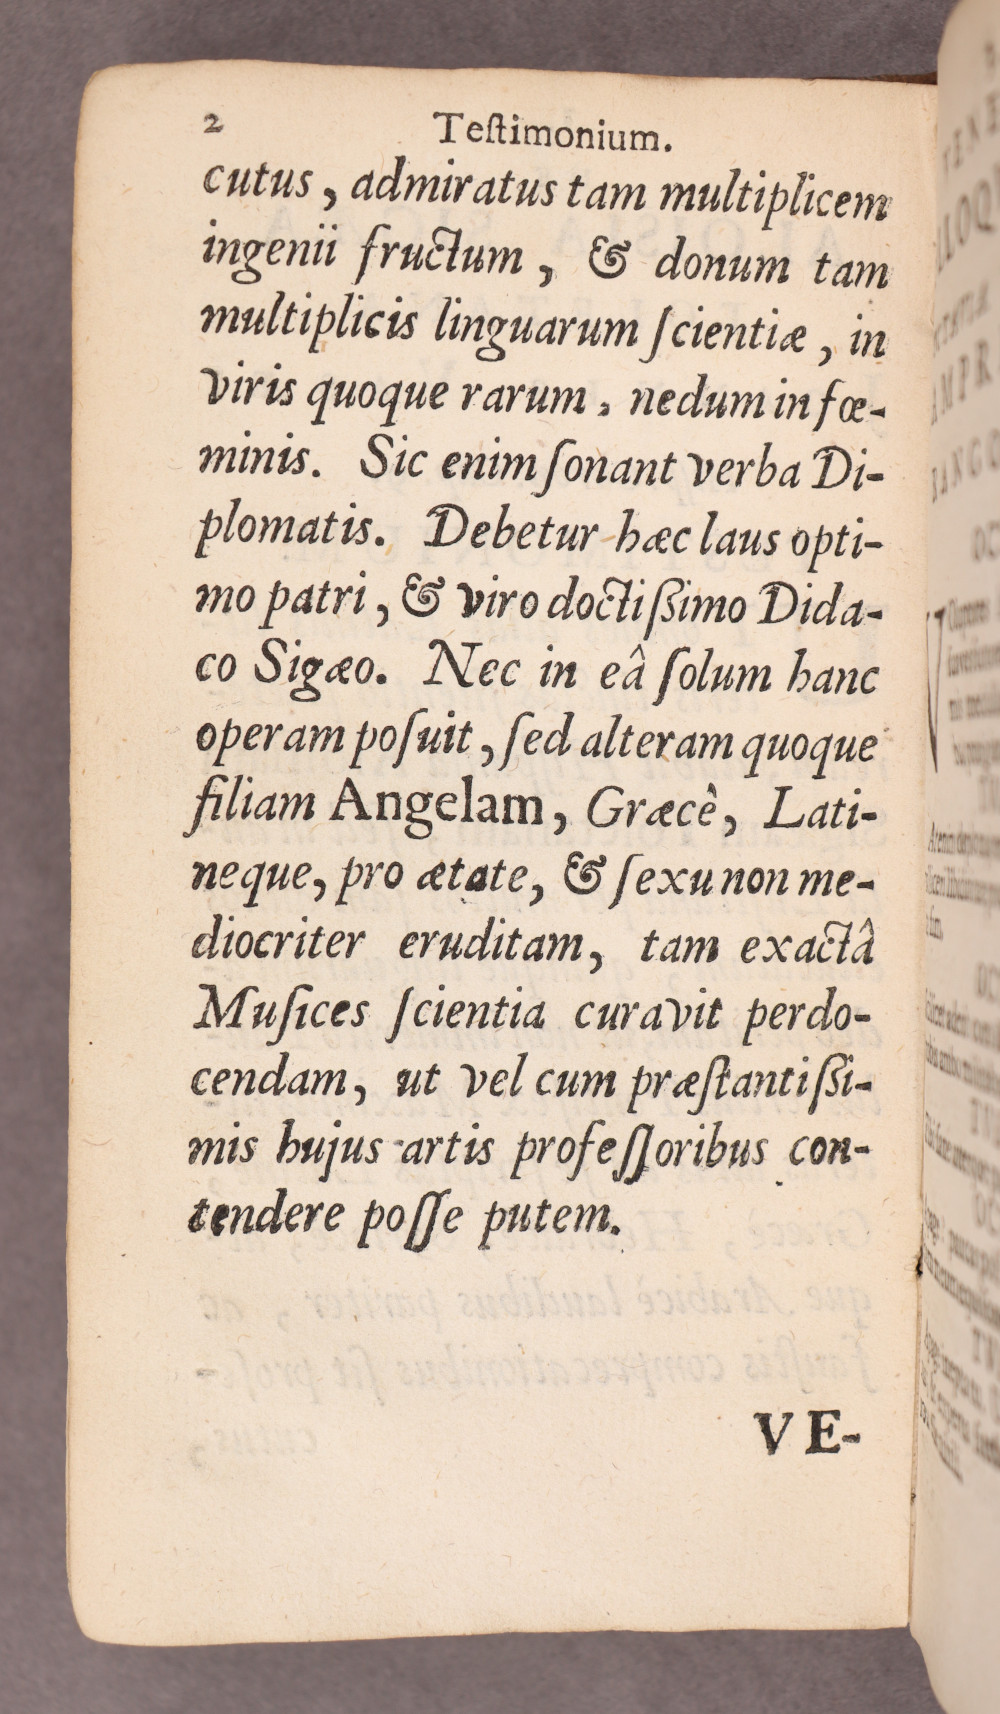 2 Teſtimonium.
cutus, admiratus tam multiplicem
ingenii fructum, & donum tam
multiplicis linguarum ſcientiæ, in
viris quoque rarum, nedum in fœ-
minis. Sic enim ſonant verba Di-
plomatis. Debetur hæc laus opti-
mo patri, & viro doctiſſimo Dida-
co Sigæo. Nec in eâ ſolum hanc
operam poſuit, ſed alteram quoque
filiam Angelam, Græcê, Lati-
neque, pro ætate, & ſexu non me-
diocriter eruditam, tam exactâ
Muſices ſcientia curavit perdo-
cendam, ut vel cum præſtantiſſi-
mis hujus artis profeſſoribus con-
tendere poſſe putem.
VE-